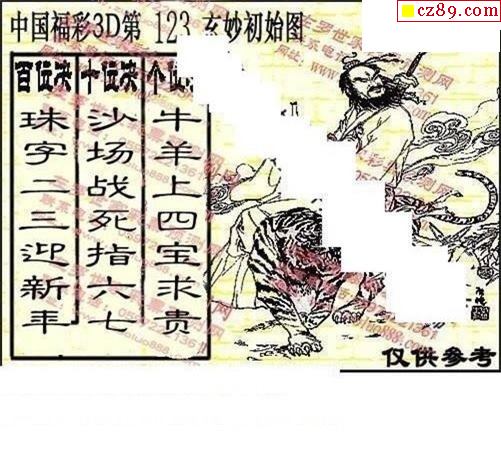 cz89.com
中国福彩3D第 123 玄妙初始图
百位决 十位决 个位
珠字二三迎新年
沙场战死指六七
牛羊上四宝求贵
仅供参考